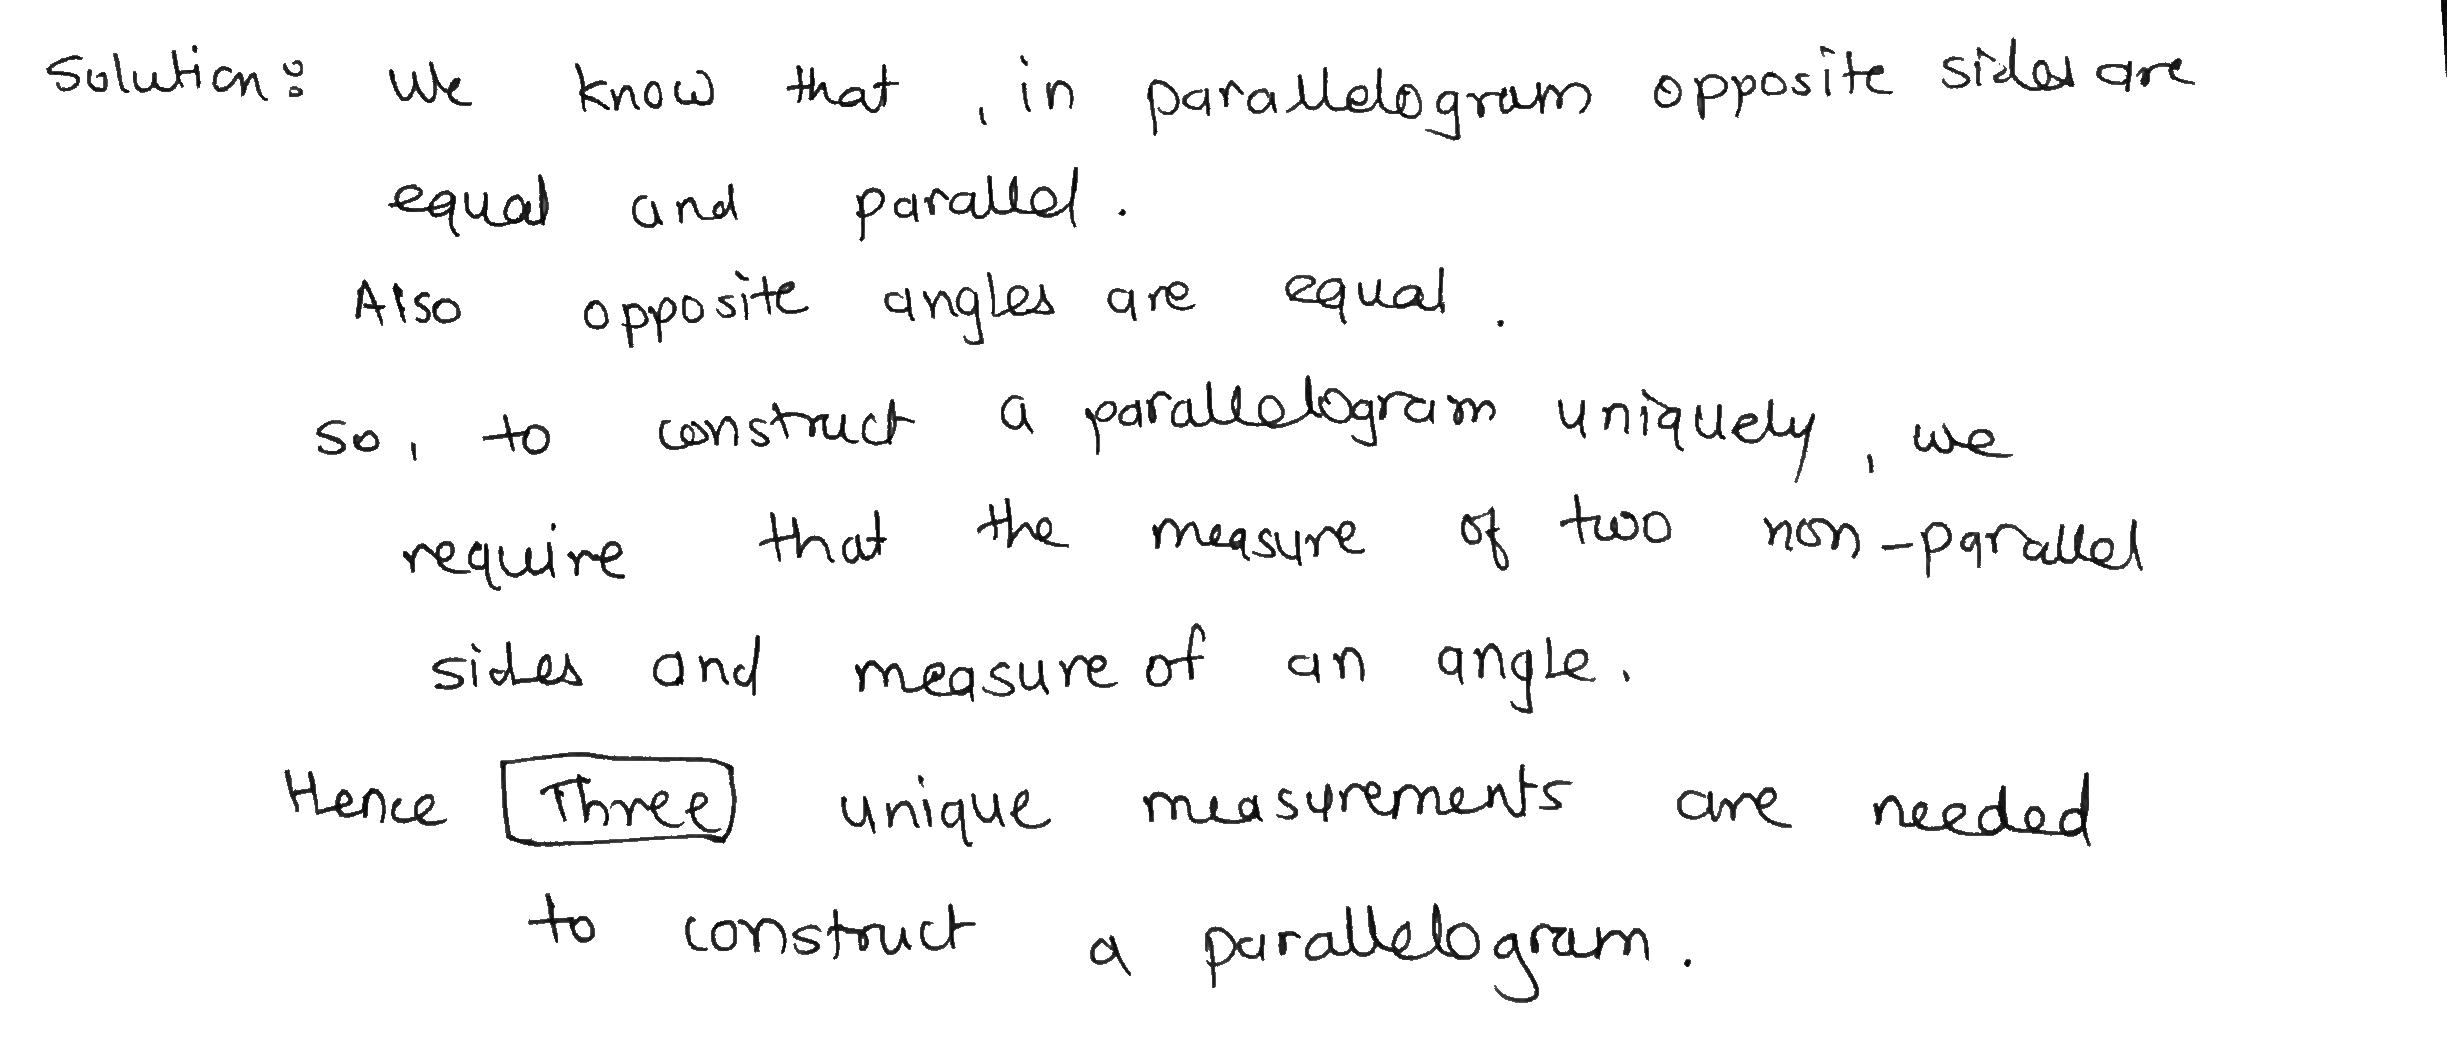 Solution: We know that, in parallelogram opposite sides are
equal and parallel.
Also opposite angles are equal.
So, to construct a parallelogram uniquely, we
require that the measure of two non-parallel
sides and measure of an angle.
Hence Three unique measurements are needed
to construct a parallelogram.